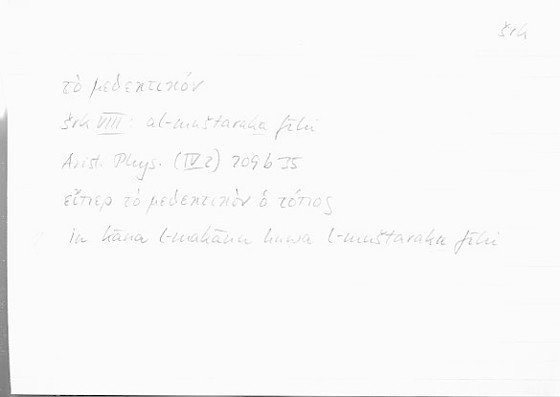 šrk
τὸ μεθεκτικόν
šrk VIII: al-muštaraka fīhi
Arist. Phys. (IV 2) 209 b 35
εἴπερ τὸ μεθεκτικὸν ὁ τόπος
in kāna l-makānu huwa l-muštaraka fīhi